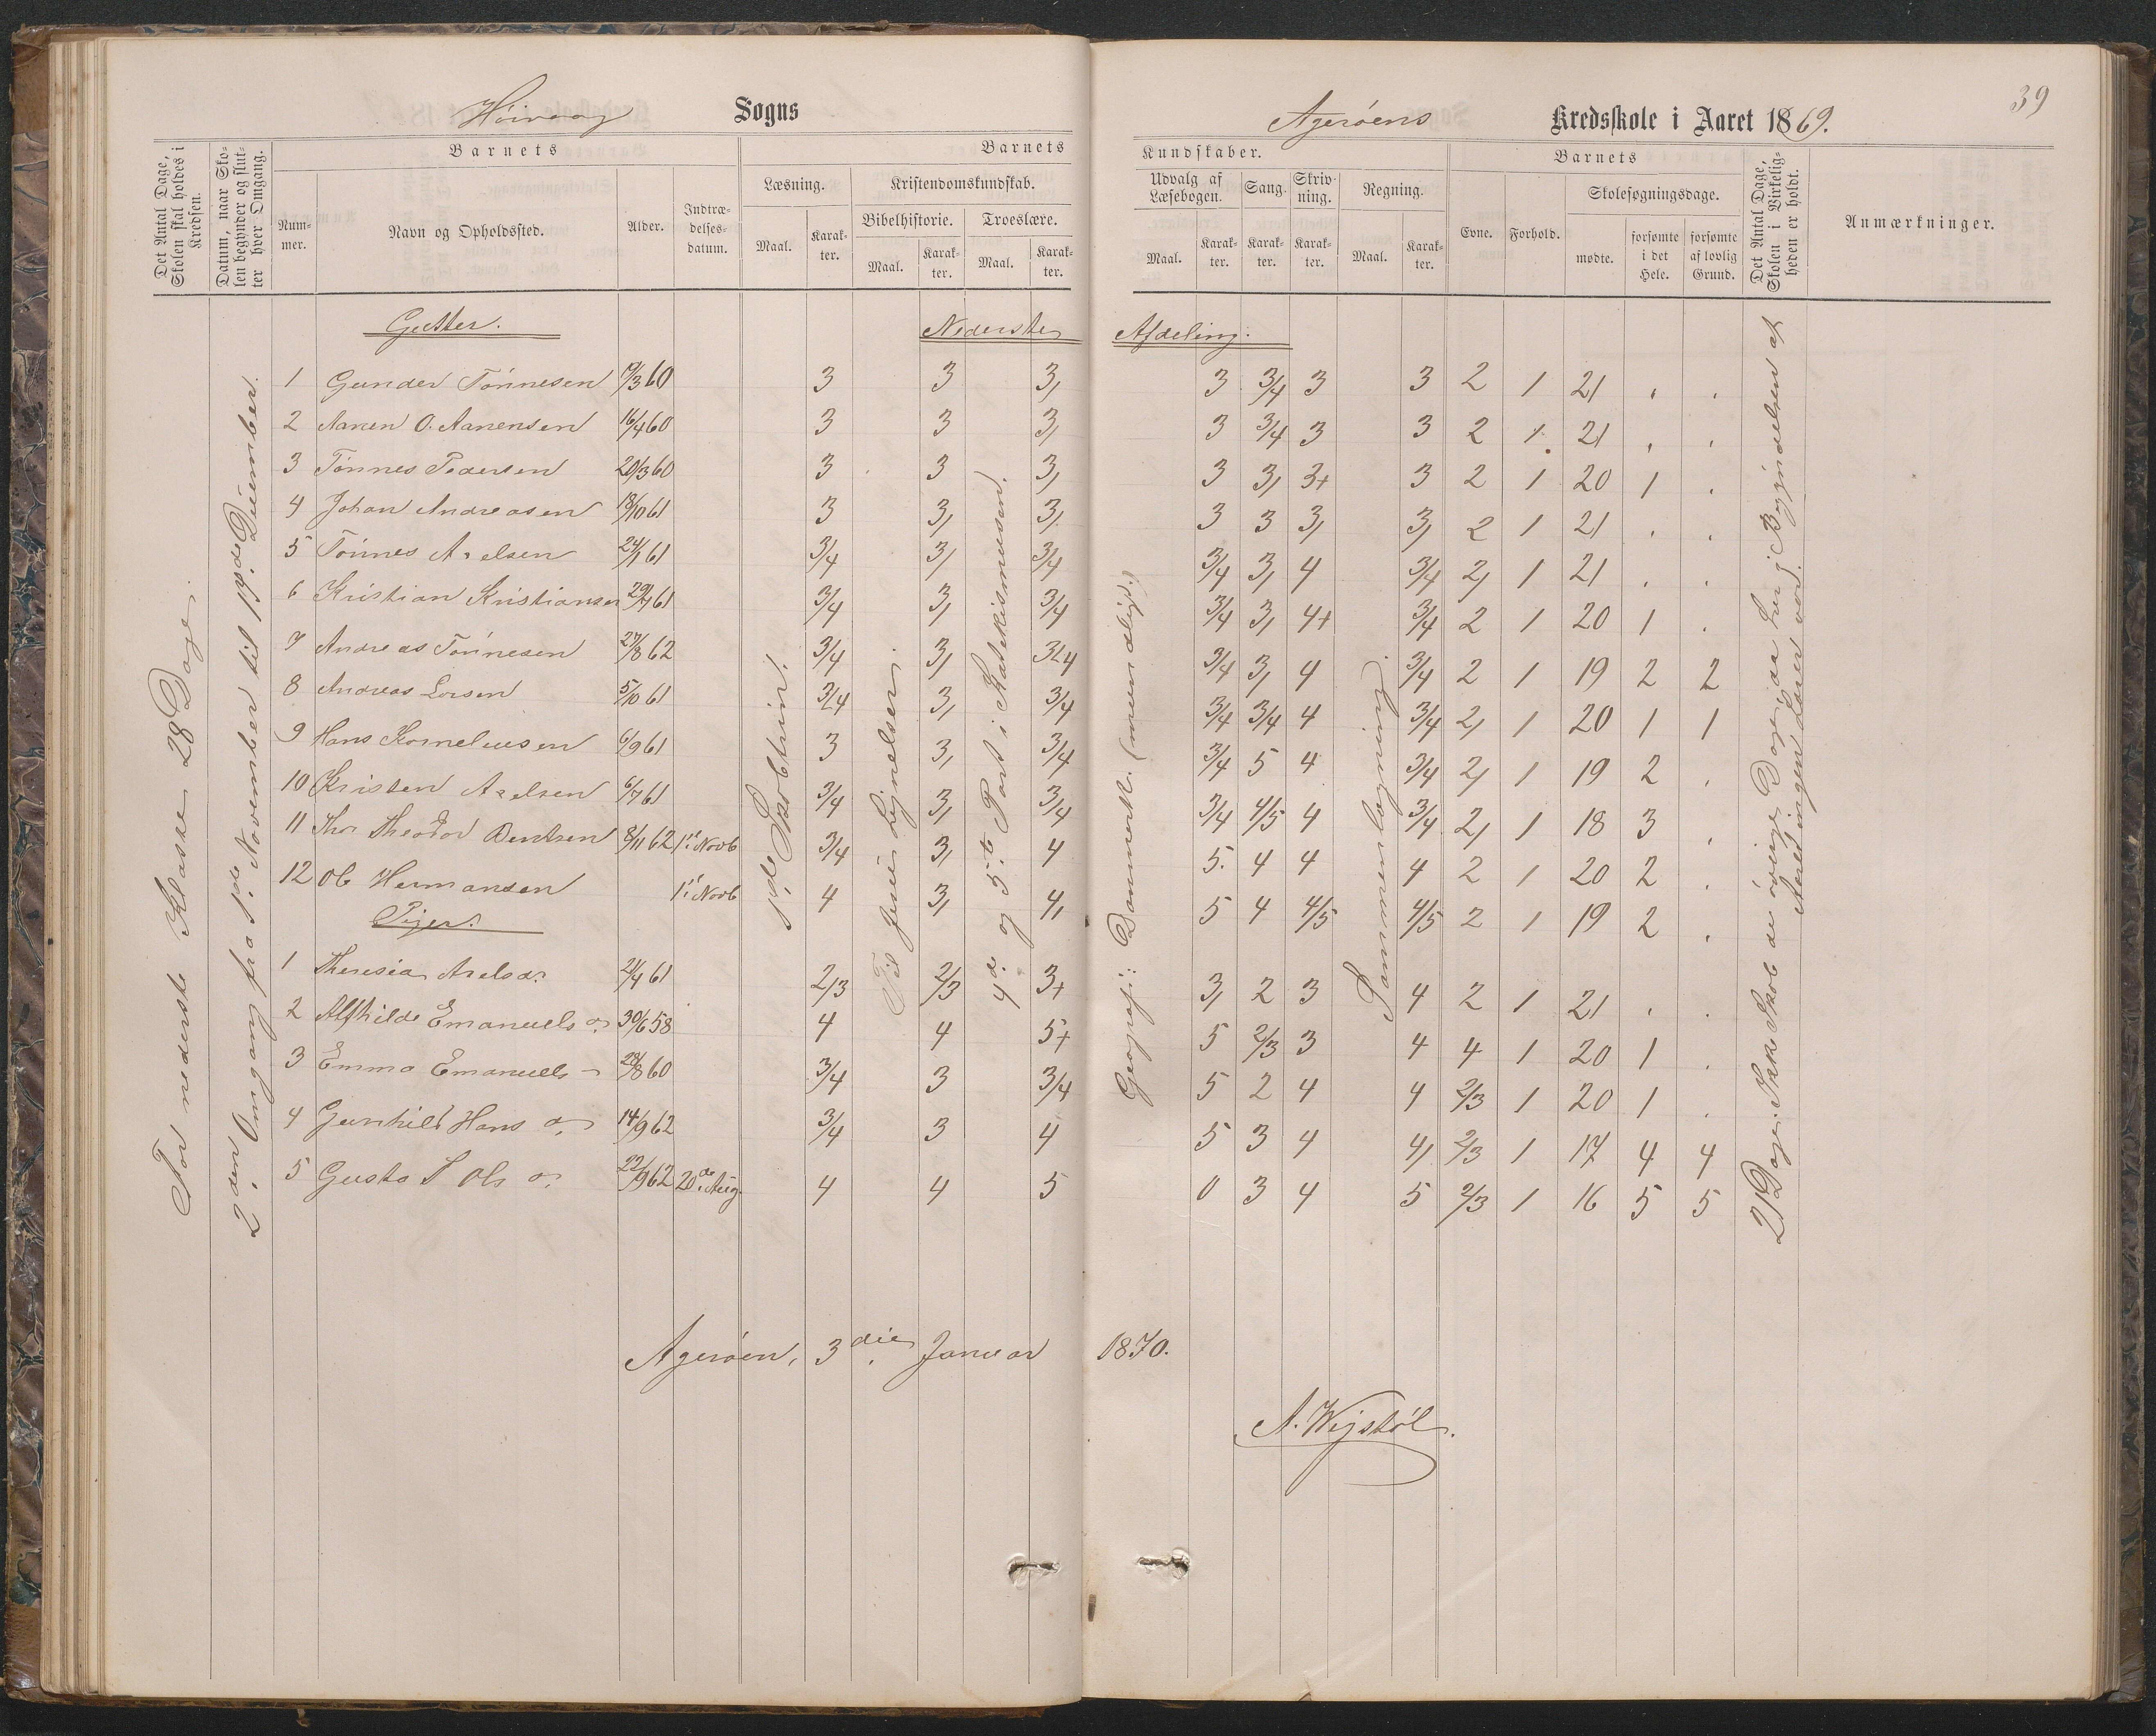 Høivaag Sogns
Agerøens Kredsskole i Aaret 1869. 39
Det Antal Dage, Skolen skal holdes i Kredsen.
Datum, naar Skolen begynder og slutter hver Omgang.
Barnets
Nummer.
Navn og Opholdssted.
Alder.
Indtrædelsesdatum.
Barnets
Læsning.
Maal.
Karakter.
Kristendomskundskab.
Bibelhistorie.
Maal.
Karakter.
Troeslære.
Maal.
Karakter.
Kundskaber.
Udvalg af Læsebogen.
Maal.
Karakter.
Sang.
Karakter.
Skrivning.
Karakter.
Regning.
Maal.
Karakter.
Barnets
Evne.
Forhold.
Skolesøgningsdage.
mødte.
forsømte i det Hele.
forsømte af lovlig Grund.
Det Antal Dage, Skolen i Virkeligheden er holdt.
Anmærkninger.
For nederste Klasse 28 Dage.
2den Omgang fra 1ste November til 18de December.
1ste Skoletrin.
Til Jesu Lignelser.
4de og 5te Part i Katekismusen.
Geografi: Danmark. (mundtligt.)
Sammenlægning.
21 Dage. Ikke Skole de øvrige Dage, da her i Begyndelsen af Aaret ingen Lærer var.
Gutter. Nederste Afdeling.
1 Gunder Tønnesen 9/3 60 3 3 3, 3 3/4 3 3 2 1 21 . .
2 Aanen O. Aanensen 16/4 60 3 3 3, 3 3/4 3 3 2 1 21 . .
3 Tønnes Pedersen 20/3 60 3 3 3, 3 3, 3+ 3 2 1 20 1 .
4 Johan Andreasen 18/10 61 3 3, 3, 3 3 3, 3, 2 1 21 . .
5 Tønnes Axelsen 24/1 61 3/4 3, 3/4 3/4 3, 4 3/4 2, 1 21 . .
6 Kristian Kristiansen 29/7 61 3/4 3, 3/4 3/4 3, 4+ 3/4 2 1 20 1 .
7 Andreas Tønnesen 27/8 62 3/4 3, 3/4 3/4 3, 4 3/4 2 1 19 2 2
8 Andreas Larsen 5/10 61 3/4 3, 3/4 3/4 3/4 4 3/4 2, 1 20 1 1
9 Hans Korneliusen 6/9 61 3 3, 3/4 3/4 5 4 3/4 2, 1 19 2 .
10 Kristen Axelsen 6/7 61 3/4 3, 3/4 3/4 4/5 4 3/4 2, 1 18 3 .
11 Thor Theodor Bentsen 8/11 62 1ste Novb 3/4 3, 4 5. 4 4 4 2 1 20 2 .
12 Ole Hermansen 1ste Novb 4 3, 4, 5 4 4/5 4/5 2 1 19 2 .
Piger.
1 Theresia Axelsd. 21/4 61 2/3 2/3 3+ 3, 2 3 4 2 1 21 . .
2 Alfhilde Emanuels d. 30/6 58 4 4 5+ 5 2/3 3 4 4 1 20 1 .
3 Emma Emanuels – 28/8 60 3/4 3 3/4 5 2 4 4 2/3 1 20 1 .
4 Gunhild Hans d. 14/9 62 3/4 3 4 5 3 4 4, 2/3 1 17 4 4
5 Gusta Ols d. 22/9 62 20de Aug. 4 4 5 0 3 4 5 2/3 1 16 5 5
Agerøen, 3die Januar 1870.
A. Wejstøl.